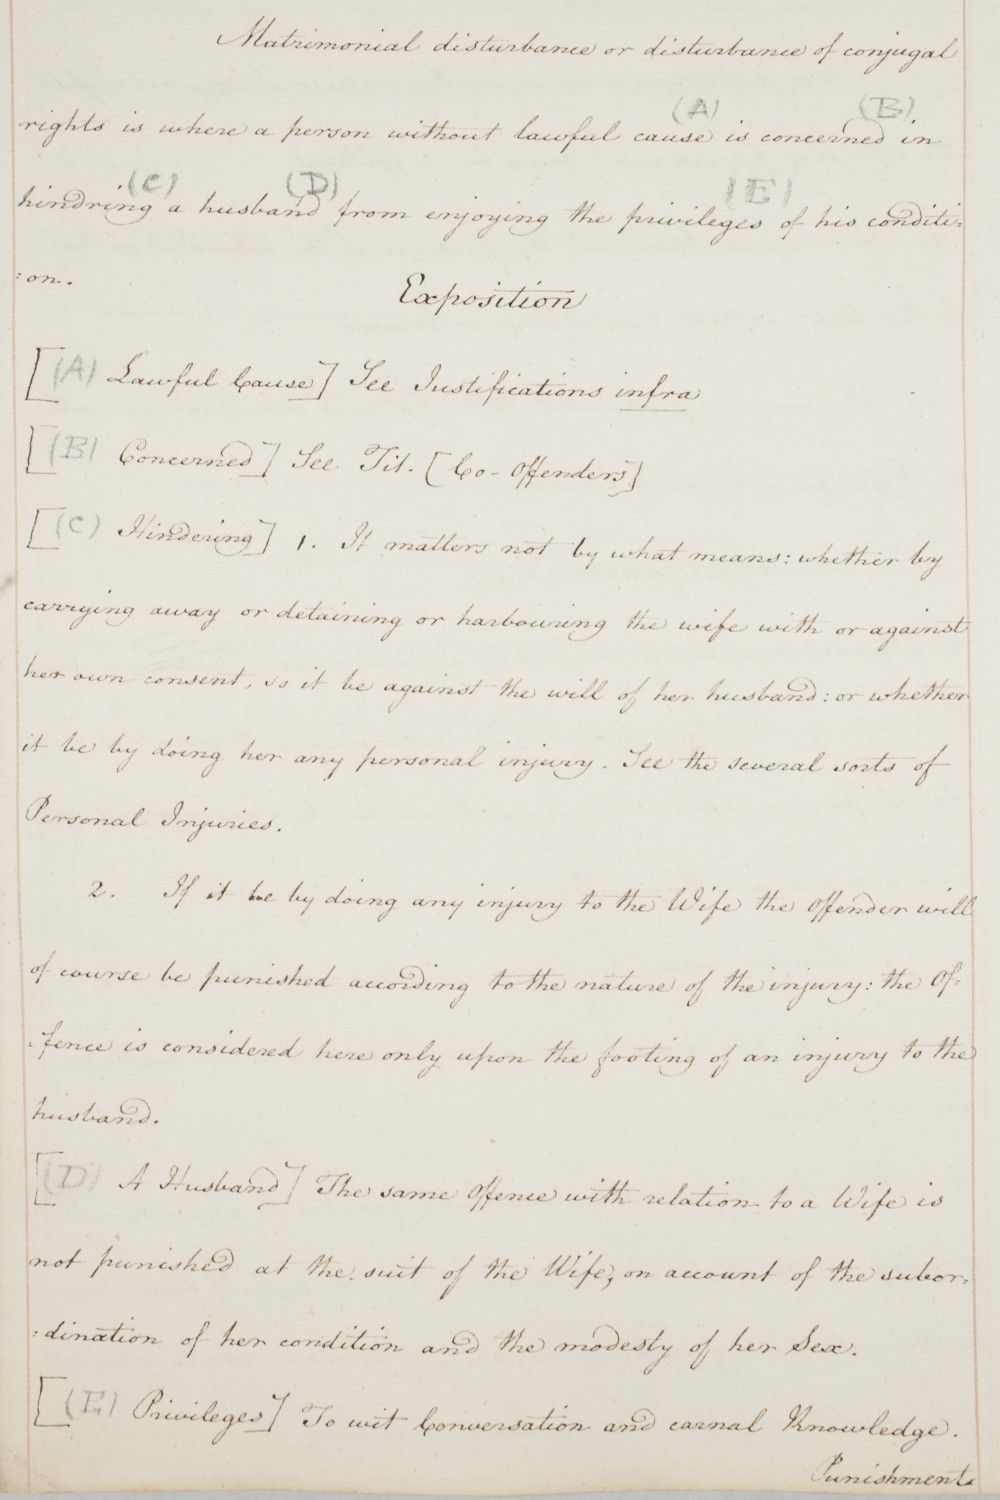 Matrimonial disturbance or disturbance of conjugal
(A) (B)
rights is where a person without lawful cause is concerned in
(C) (D) (E)
hindring a husband from enjoying the privileges of his conditi:
:on.
Exposition
[(A) Lawful Cause] See Justifications infra
[(B) Concerned] See Tit. [Co-Offenders]
[(C) Hindering] 1. It matters not by what means: whether by
carrying away or detaining or harbouring the wife with or against
her own consent, so it be against the will of her husband: or whether
it be by doing her any personal injury. See the several sorts of
Personal Injuries.
2. If it be by doing any injury to the Wife the Offender will
of course be punished according to the nature of the injury: the Of-
-fence is considered here only upon the footing of an injury to the
husband.
[(D) A Husband] The same Offence with relation to a Wife is
not punished at the suit of the Wife, on account of the subor:
:dination of her condition and the modesty of her Sex.
[(E) Privileges] To wit Conversation and carnal Knowledge.
Punishment